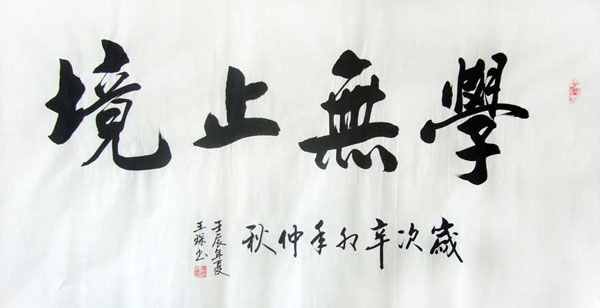 學無止境
歲次辛卯年仲秋
壬辰年夏
王 书